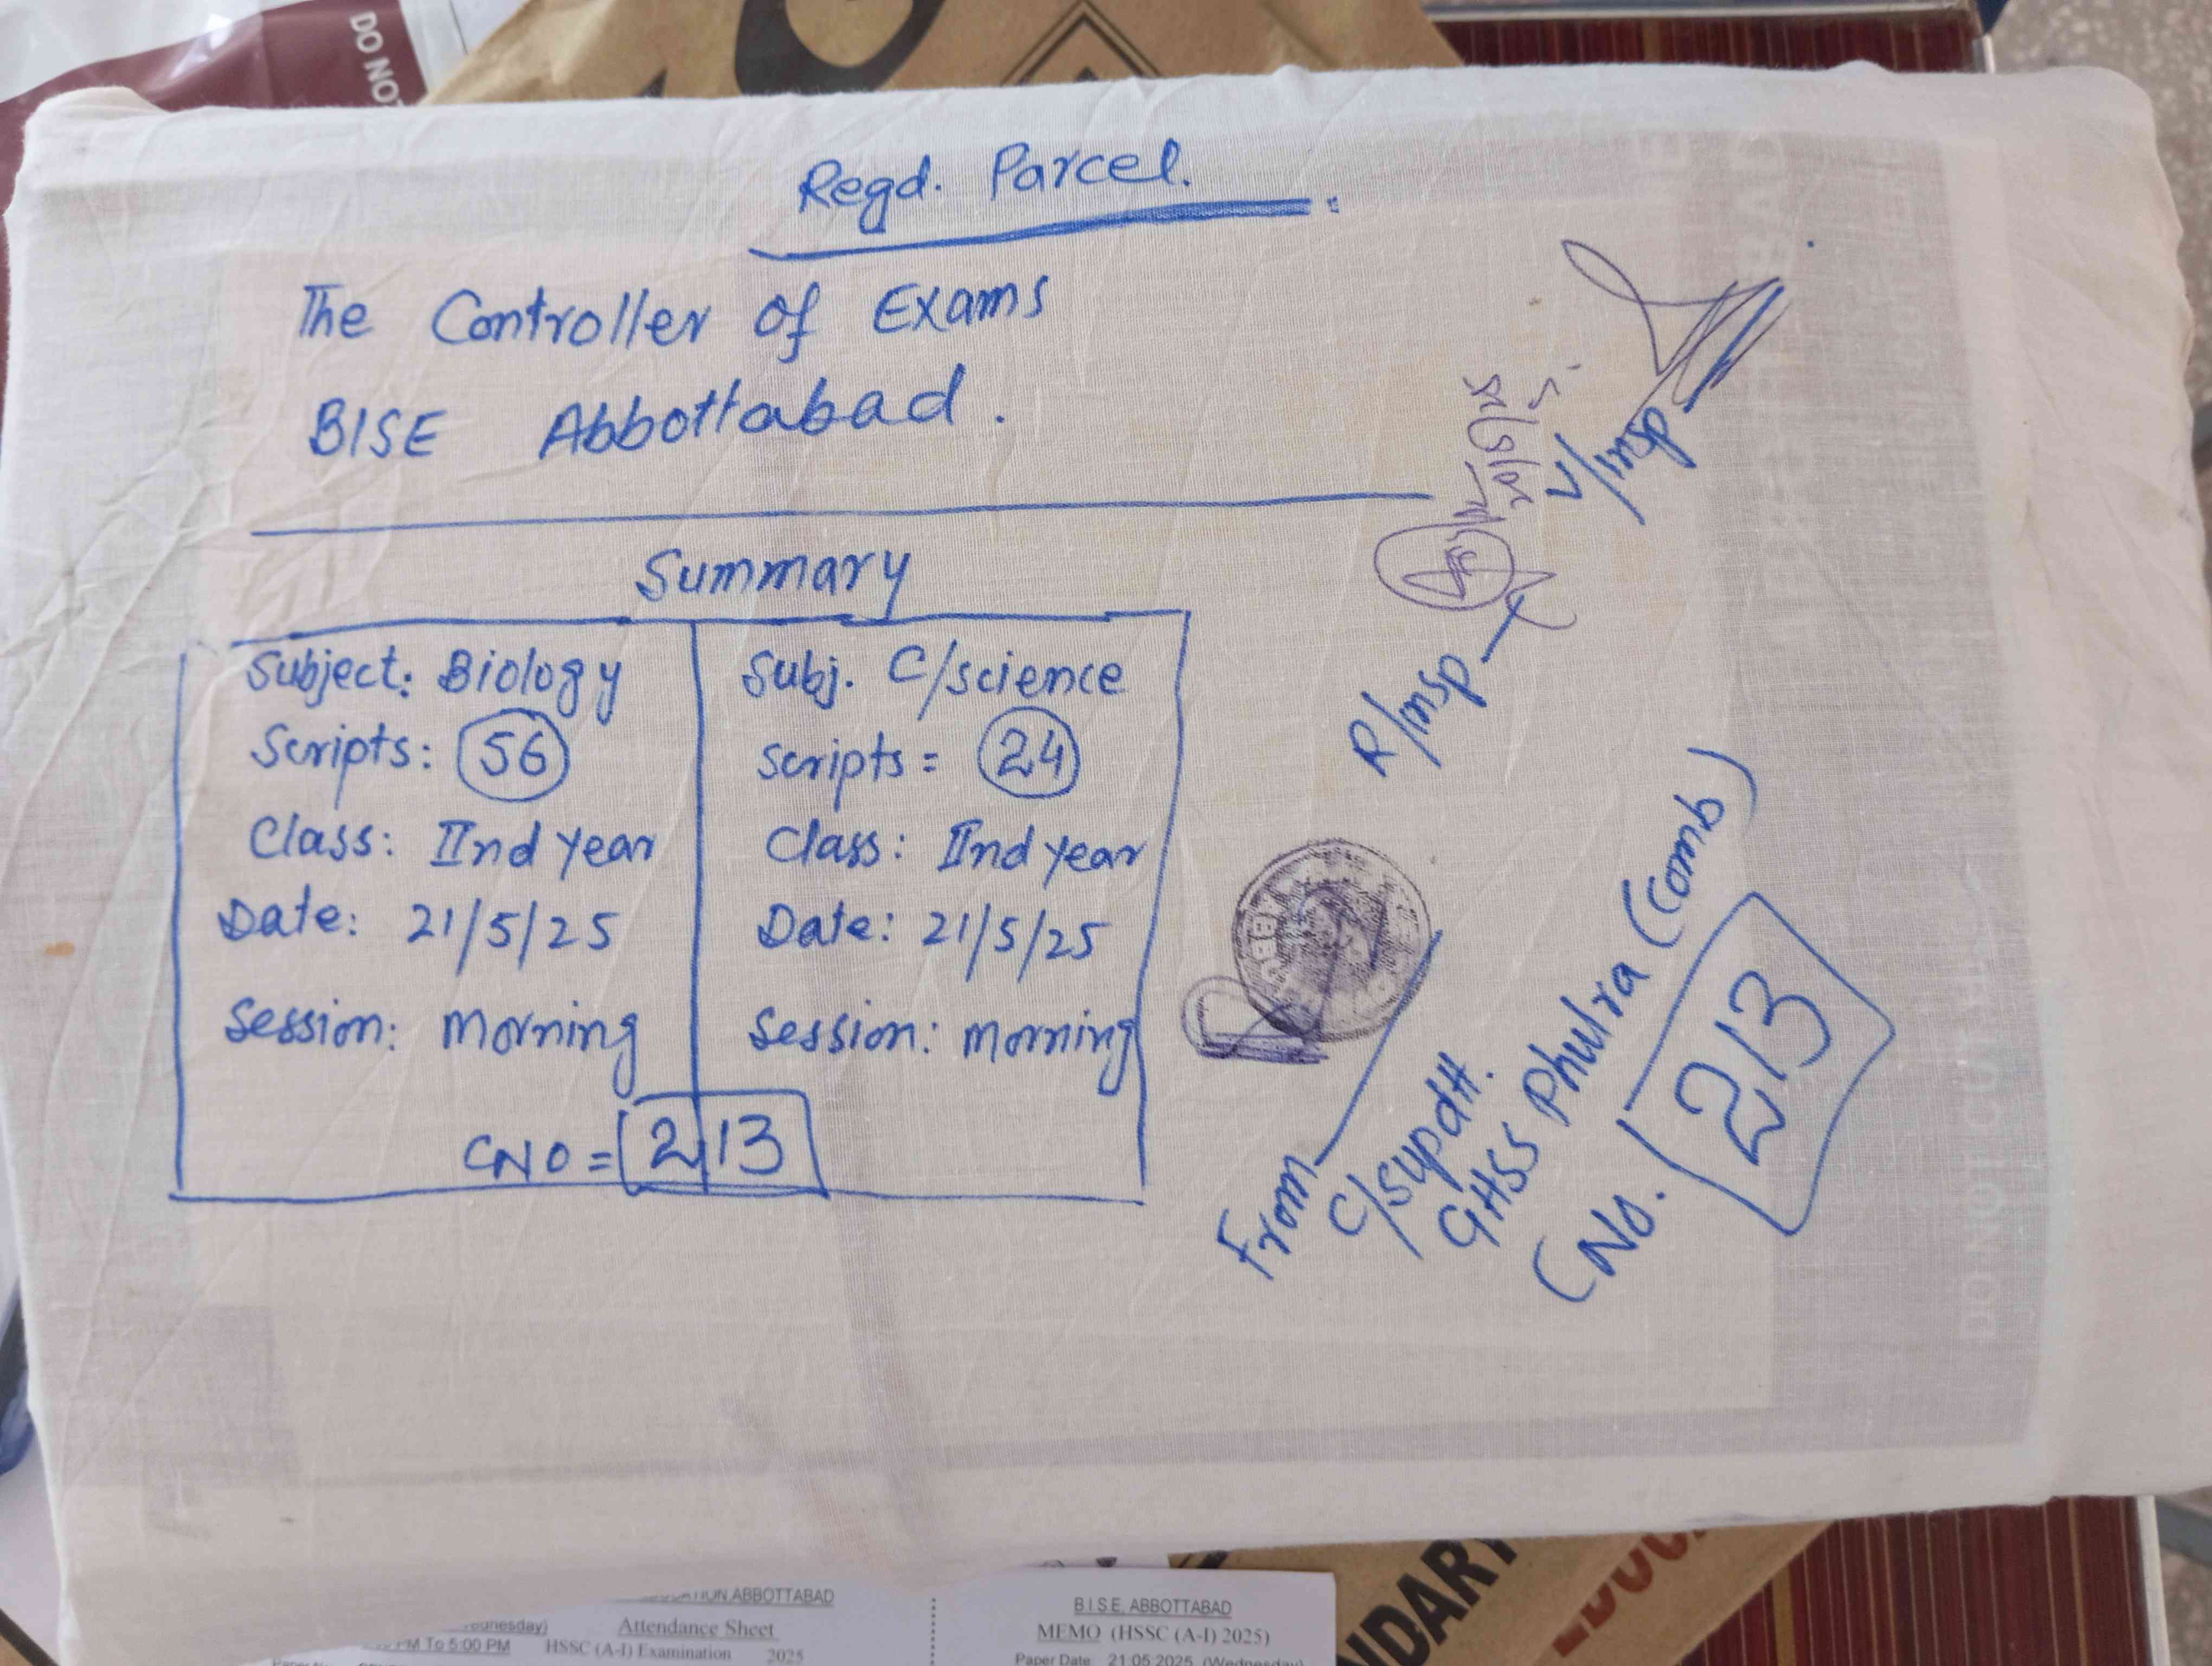 DO NOT
Regd. Parcel.
The Controller of Exams
BISE Abbottabad.
Summary
Subject: Biology
Scripts: 56
Class: IInd year
Date: 21/5/25
Session: Morning
Subj. C/science
Scripts = 24
Class: IInd year
Date: 21/5/25
Session: Morning
CNO = 213
V/Insp
R/Insp
From
C/Supdtt.
GHSS Phulra (Comb)
CNo. 213
ABBOTTABAD
Attendance Sheet
PM To 5:00 PM HSSC (A-I) Examination 2025
B.I.S.E, ABBOTTABAD
MEMO (HSSC (A-I) 2025)
Paper Date: 21:05:2025 (Wednesday)